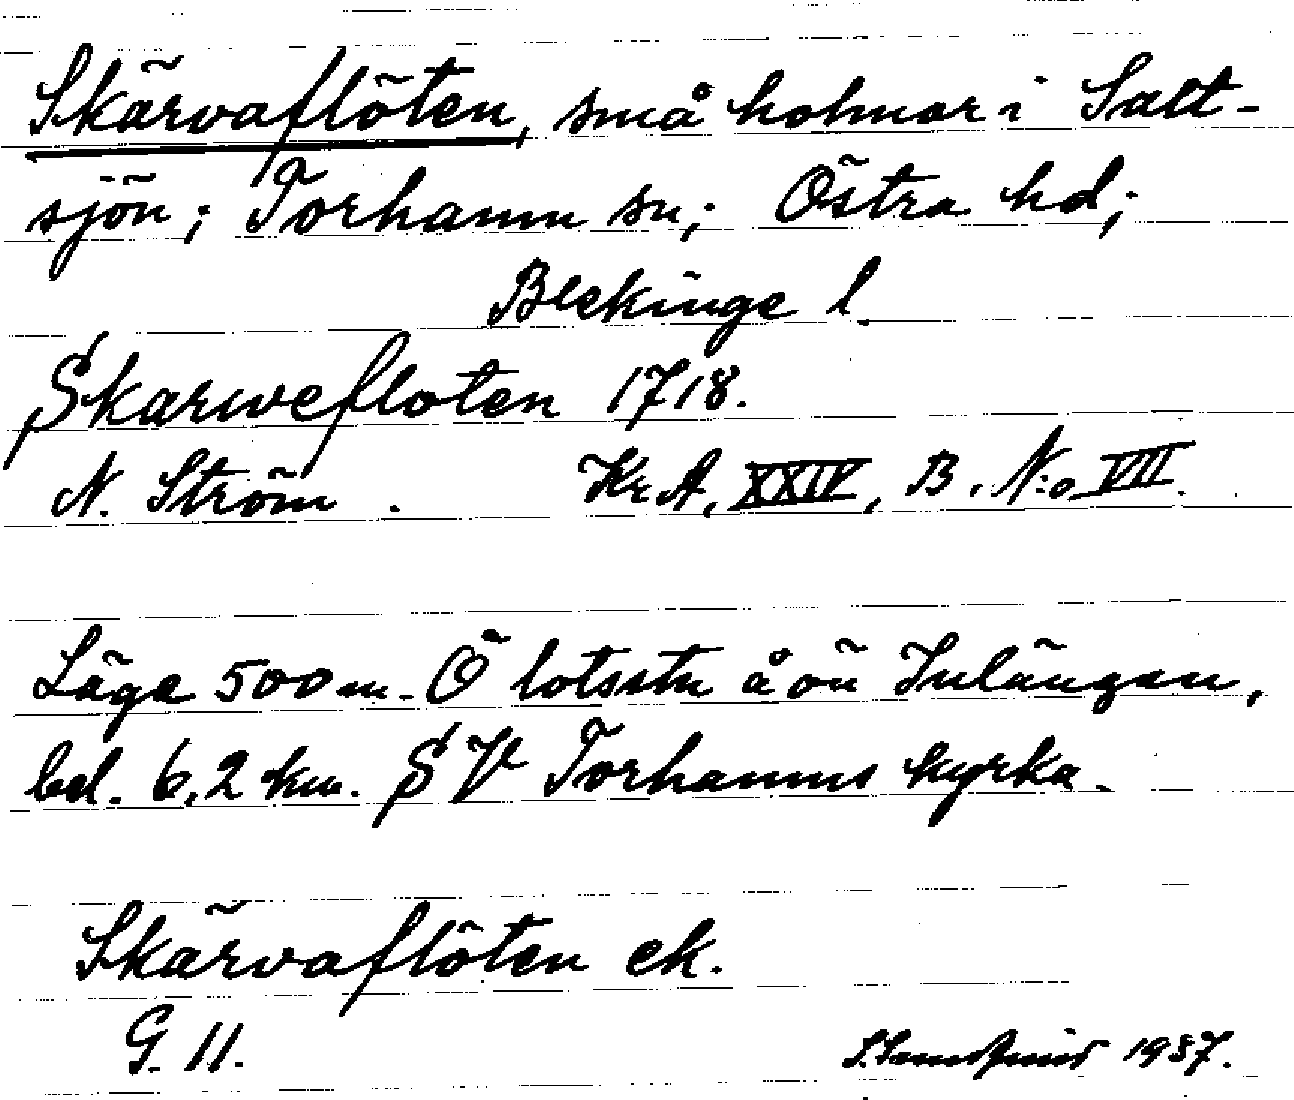 Skärvaflöten, små holmar i Salt-
sjön; Torhamn sn; Östra hd;
Blekinge l.
Skarwefloten 1718.
N. Ström. Kr A, XXIV, B. N:o VII.
Läge 500 m. Ö lotsstn å ön Inlängan,
bel. 6,2 km. SV Torhamns kyrka.
Skärvaflöten ek.
G. 11. 1937.